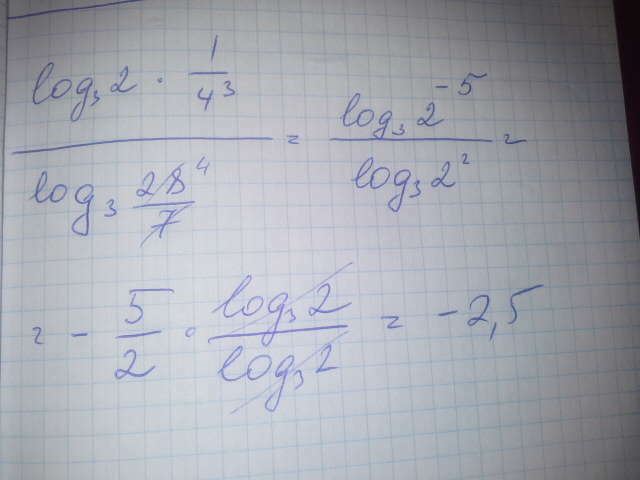 log₃2 · 1/4³ / log₃ 28⁴/7 = log₃2⁻⁵ / log₃2² =
= - 5/2 · log₃2 / log₃2 = -2,5